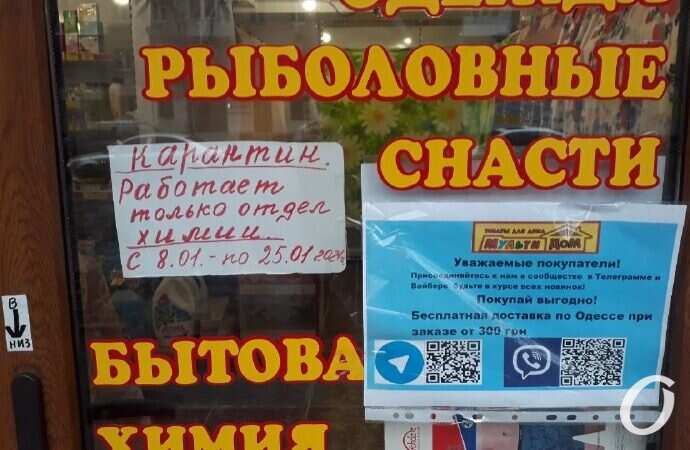 ОДЕЖДА
РЫБОЛОВНЫЕ
СНАСТИ
Карантин.
Работает
только отдел
химии
с 8.01.- по 25.01
ТОВАРЫ ДЛЯ ДОМА
МУЛЬТИ ДОМ
Уважаемые покупатели!
Присоединяйтесь к нам в сообществе в Телеграмме и
Вайбере будьте в курсе всех новинок!
Покупай выгодно!
Бесплатная доставка по Одессе при
заказе от 300 грн
В
НИЗ
БЫТОВА
ХИМИЯ